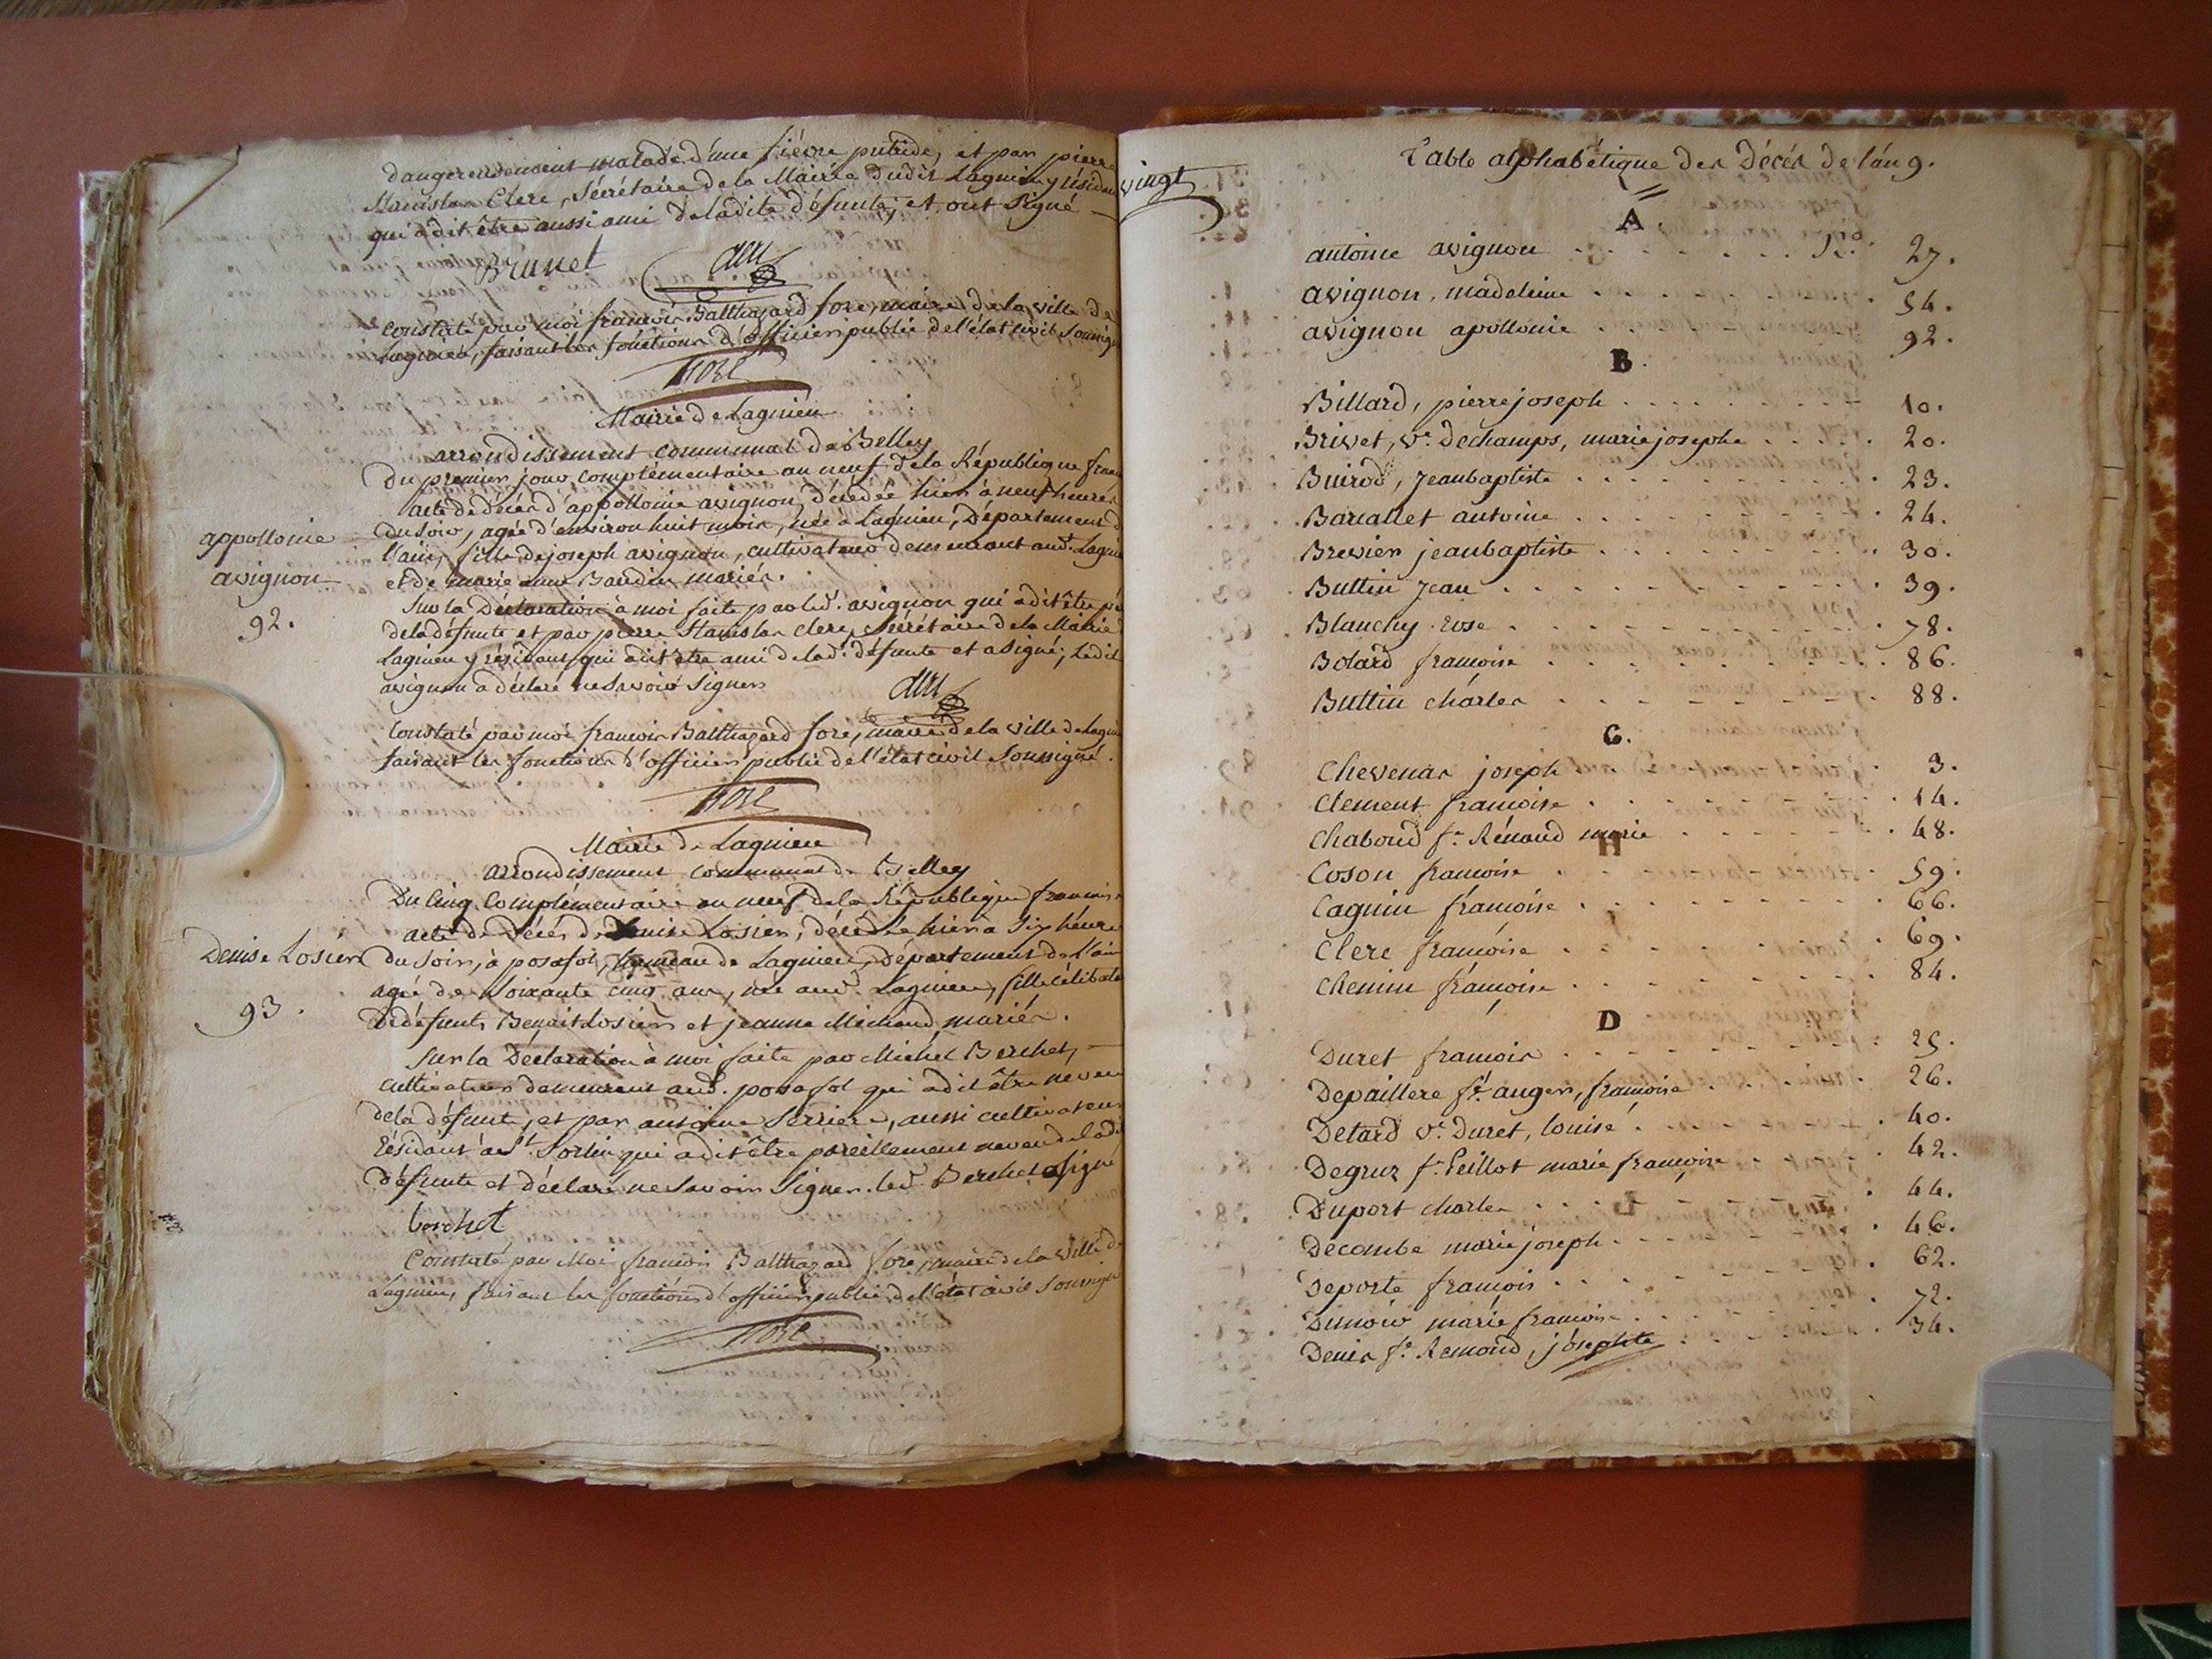 dangereusement malade d'une fiévre putride, et par pierre
Stanislas Clerc, Sécrétaire de la Mairie dudit Lagnieu y résidant
qui a dit être aussi ami de ladite défunte, et ont Signé
Brunet
Constaté par moi françois Balthazard fore, maire de la ville de
Lagnieu, faisant les fonctions d'officier public de l'état civil Soussigné
fore
Mairie de Lagnieu
arrondissement communal de Belley
Du premier jour complémentaire an neuf de la République fran
acte de décès d'appollonie avignon, décédée hier à neuf heures
appollonie
avignon
92.
du soir, agée d'environ huit mois, née à Lagnieu, Département d
l'ain, fille de joseph avignon, cultivateur demeurant aud. Lagnieu
et de marie anne Baudin mariés.
Sur la Déclaration à moi faite par led. avignon qui a dit être pè
de la défunte et par pierre Stanislas clerc, Sécrétaire de la Mairie
Lagnieu y résidant, qui a dit être ami de lad. défunte et a signé, Ledit
avignon a déclaré ne Savoir Signer
Constaté par moi françois Balthazard fore, maire de la ville de Lagnieu
faisant les fonctions d'officier public de l'état civil Soussigné.
fore
Mairie de Lagnieu
arrondissement communal de Belley
Du Cinq Complémentaire an neuf de la République francoise
acte de Décés de Denise Losier, décédée hier à Six heures
Denise Losier
93.
Du Soir, à posafol, hameau de Lagnieu, Département de l'ain
agée de Soixante cinq ans, née aud. Lagnieu, fille célibataire
De défunts Benoit Losier et jeanne Michaud mariés.
Sur la Déclaration à moi faite par Michel Berchet,
cultivateur demeurant aud. posafol qui a dit être neveu
de la défunte, et par antoine Serriere, aussi cultivateur
Résidant à St. Sorlin qui a dit être pareillement neveu de ladi
défunte et déclaré ne Savoir Signer. led. Berchet a Signé
berchet
Constaté par Moi françois Balthazard fore, maire de la ville de
Lagnieu, faisant les fonctions d'officier public de l'état civil Soussigné
fore
vingt
Table alphabétique des Décés de l'an 9.
A.
antoine avignon 27.
avignon, madeleine 54.
avignon apollonie 92.
B.
Billard, pierre joseph 10.
Brivet, Ve. Dechamps, marie josephe 20.
Buirod, Jean baptiste 23.
Bariallet antoine 24.
Brevier jean baptiste 30.
Buttin Jean 39.
Blanchy rose 78.
Bolard françoise 86.
Buttin charles 88.
C.
Chevenas joseph 3.
Clement françoise 14.
Chaboud fe. Rénaud marie 48.
Coson françoise 59.
Cagnin françoise 66.
Clerc françoise 69.
Chemin françoise 84.
D
Duret françois 25.
Depaillere fe. anger, françoise 26.
Detard Ve. Duret, louise 40.
Degruz fe. Peillot marie françoise 42.
Duport charles 44.
Decombe marie joseph 46.
Deporte françois 62.
Dunoir marie françoise 72.
Denis fe. Remond, josephte 34.